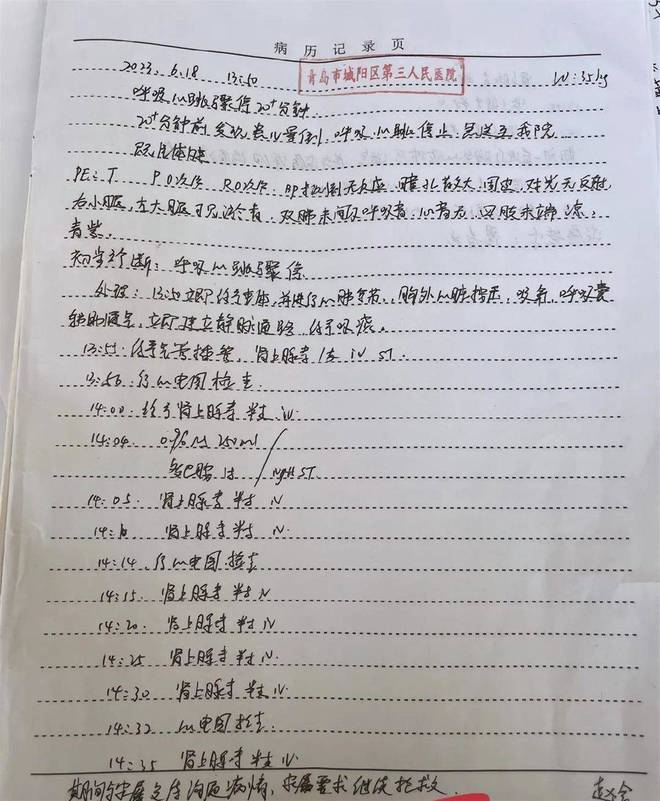 病历记录页
2023.6.18 13:50 青岛市城阳区第三人民医院 W:35kg
呼吸心跳骤停20⁺分钟
20⁺分钟前发现患儿晕倒,呼吸、心跳停止,急送至我院
既往体健
PE:T P 0次/分 R 0次/分 BP 无反应,瞳孔散大,固定,对光无反射,
右小腿,左大腿可见淤青,双肺未闻及呼吸音,心音无,四肢末端凉,
青紫.
初步诊断:呼吸心跳骤停
处理:立即 并进行心肺复苏,胸外心脏按压,吸氧,呼吸囊
辅助通气,立即建立静脉通路,给予吸痰.
13:51 行气管插管,肾上腺素 1支 iv ST.
13:56 行心电图检查.
14:00 给予肾上腺素 半支 iv.
14:04 0.9% NS 250ml
多巴胺 ivgtt ST.
14:05. 肾上腺素 半支 iv
14:10 肾上腺素 半支 iv.
14:14 行心电图检查
14:15. 肾上腺素 半支 iv
14:20. 肾上腺素 半支 iv
14:25 肾上腺素 半支 iv.
14:30 肾上腺素 半支 iv.
14:32 心电图检查.
14:35 肾上腺素 半支 iv.
期间与家属交待沟通病情,家属要求继续抢救.